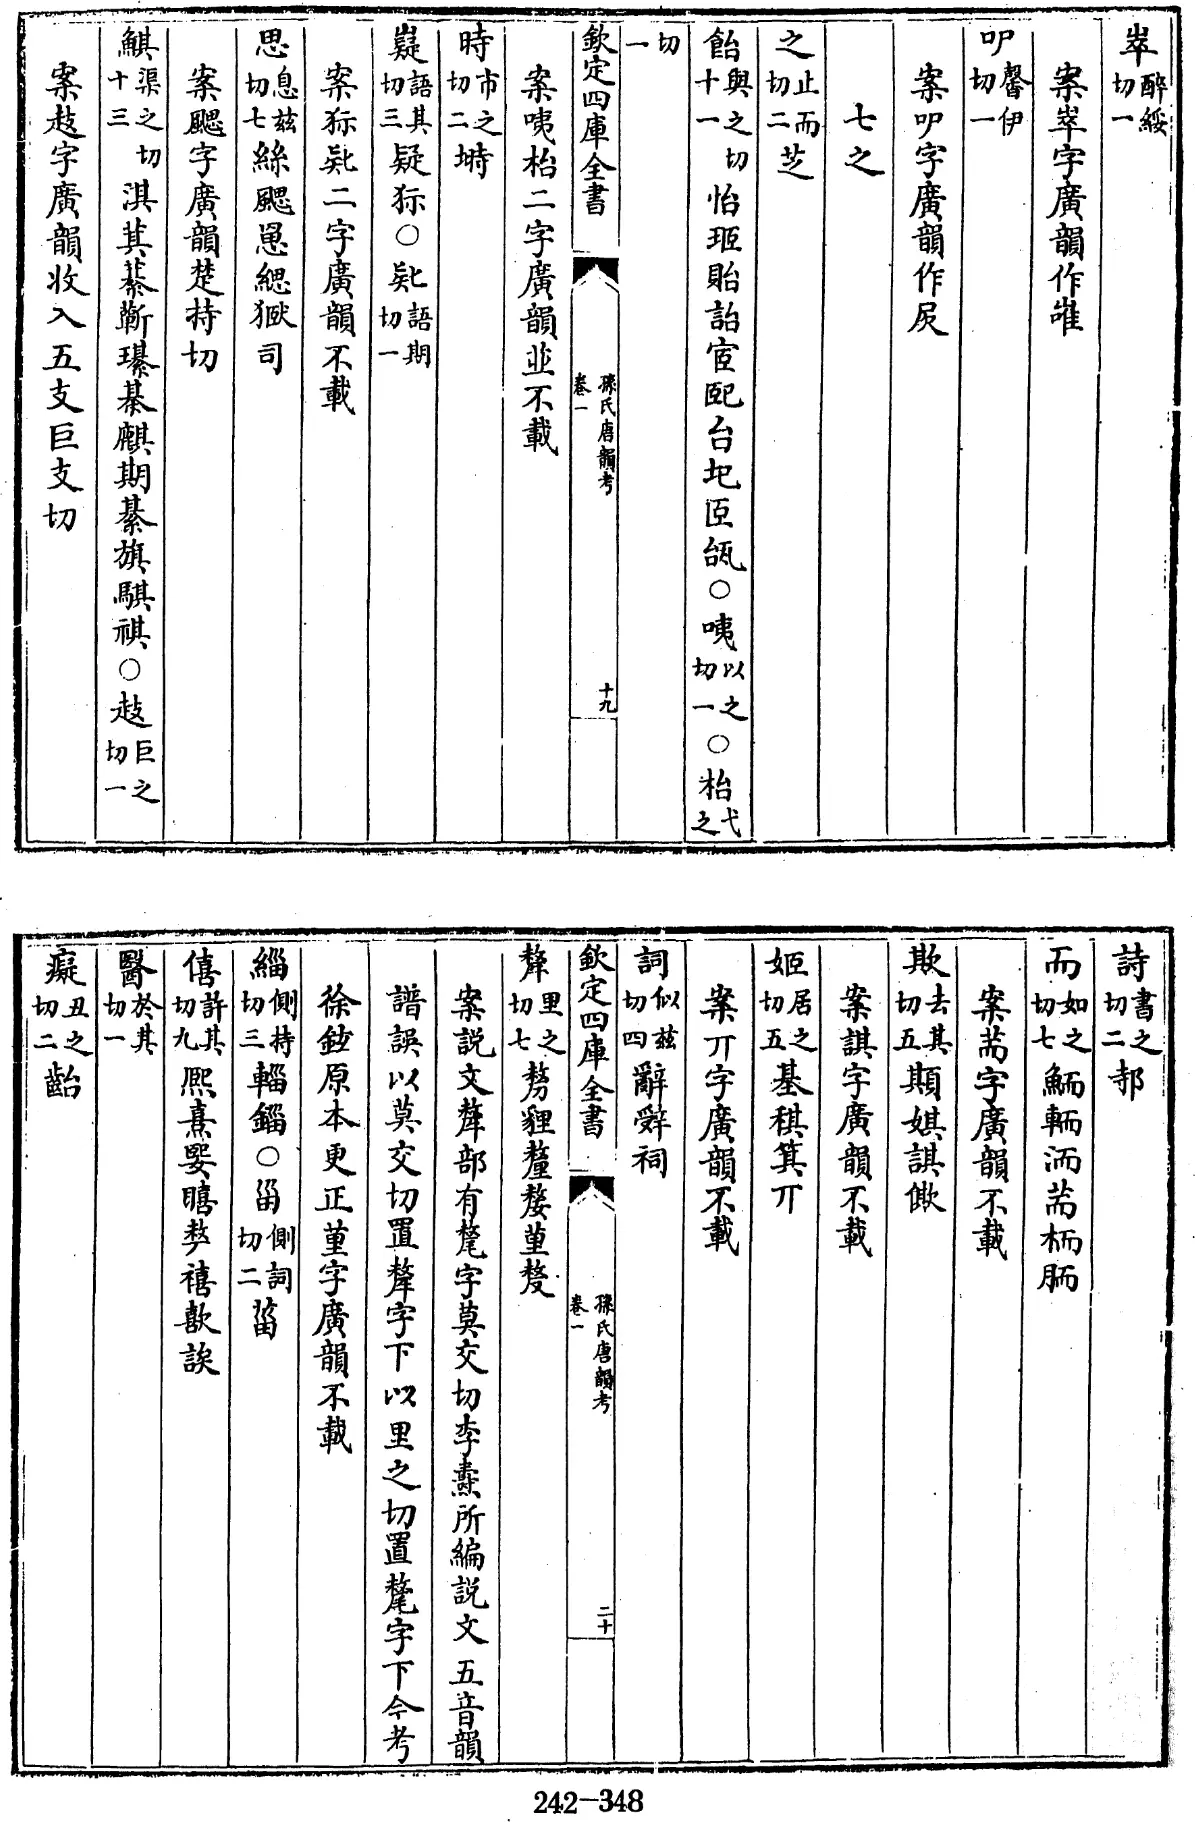 崒醉綏切一
案崒字廣韻作嶉
吅馨伊切一
案吅字廣韻作㞎
七之
之止而切二芝
飴與之切十一怡瓵貽詒宧巸台圯𦣞瓵○咦以之切一○枱弋之
切一
欽定四庫全書
孫氏唐韻考
卷一
十九
案咦枱二字廣韻並不載
時市之切二塒
嶷語其切三疑狋○㠱語期切一
案狋㠱二字廣韻不載
思息玆切七絲颸罳緦獄司
案颸字廣韻楚持切
鯕渠之切十三淇萁綦蘄璂棊麒期綦旗騏祺○䞚巨之切一
案䞚字廣韻收入五支巨支切
詩書之切二邿
而如之切七鮞輀洏荋栭胹
案荋字廣韻不載
欺去其切五䫏娸諆僛
案諆字廣韻不載
姬居之切五基稘箕丌
案丌字廣韻不載
詞似玆切四辭辤祠
欽定四庫全書
孫氏唐韻考
卷一
二十
犛里之切七剺貍釐嫠菫𠩺
案説文犛部有氂字莫交切李燾所編説文五音韻
譜誤以莫交切置犛字下以里之切置氂字下今考
徐鉉原本更正菫字廣韻不載
緇側持切三輜錙○甾側詞切二菑
僖許其切九熈熹娶瞦嫠禧歖誒
醫於其切一
癡丑之切二齝
242-348